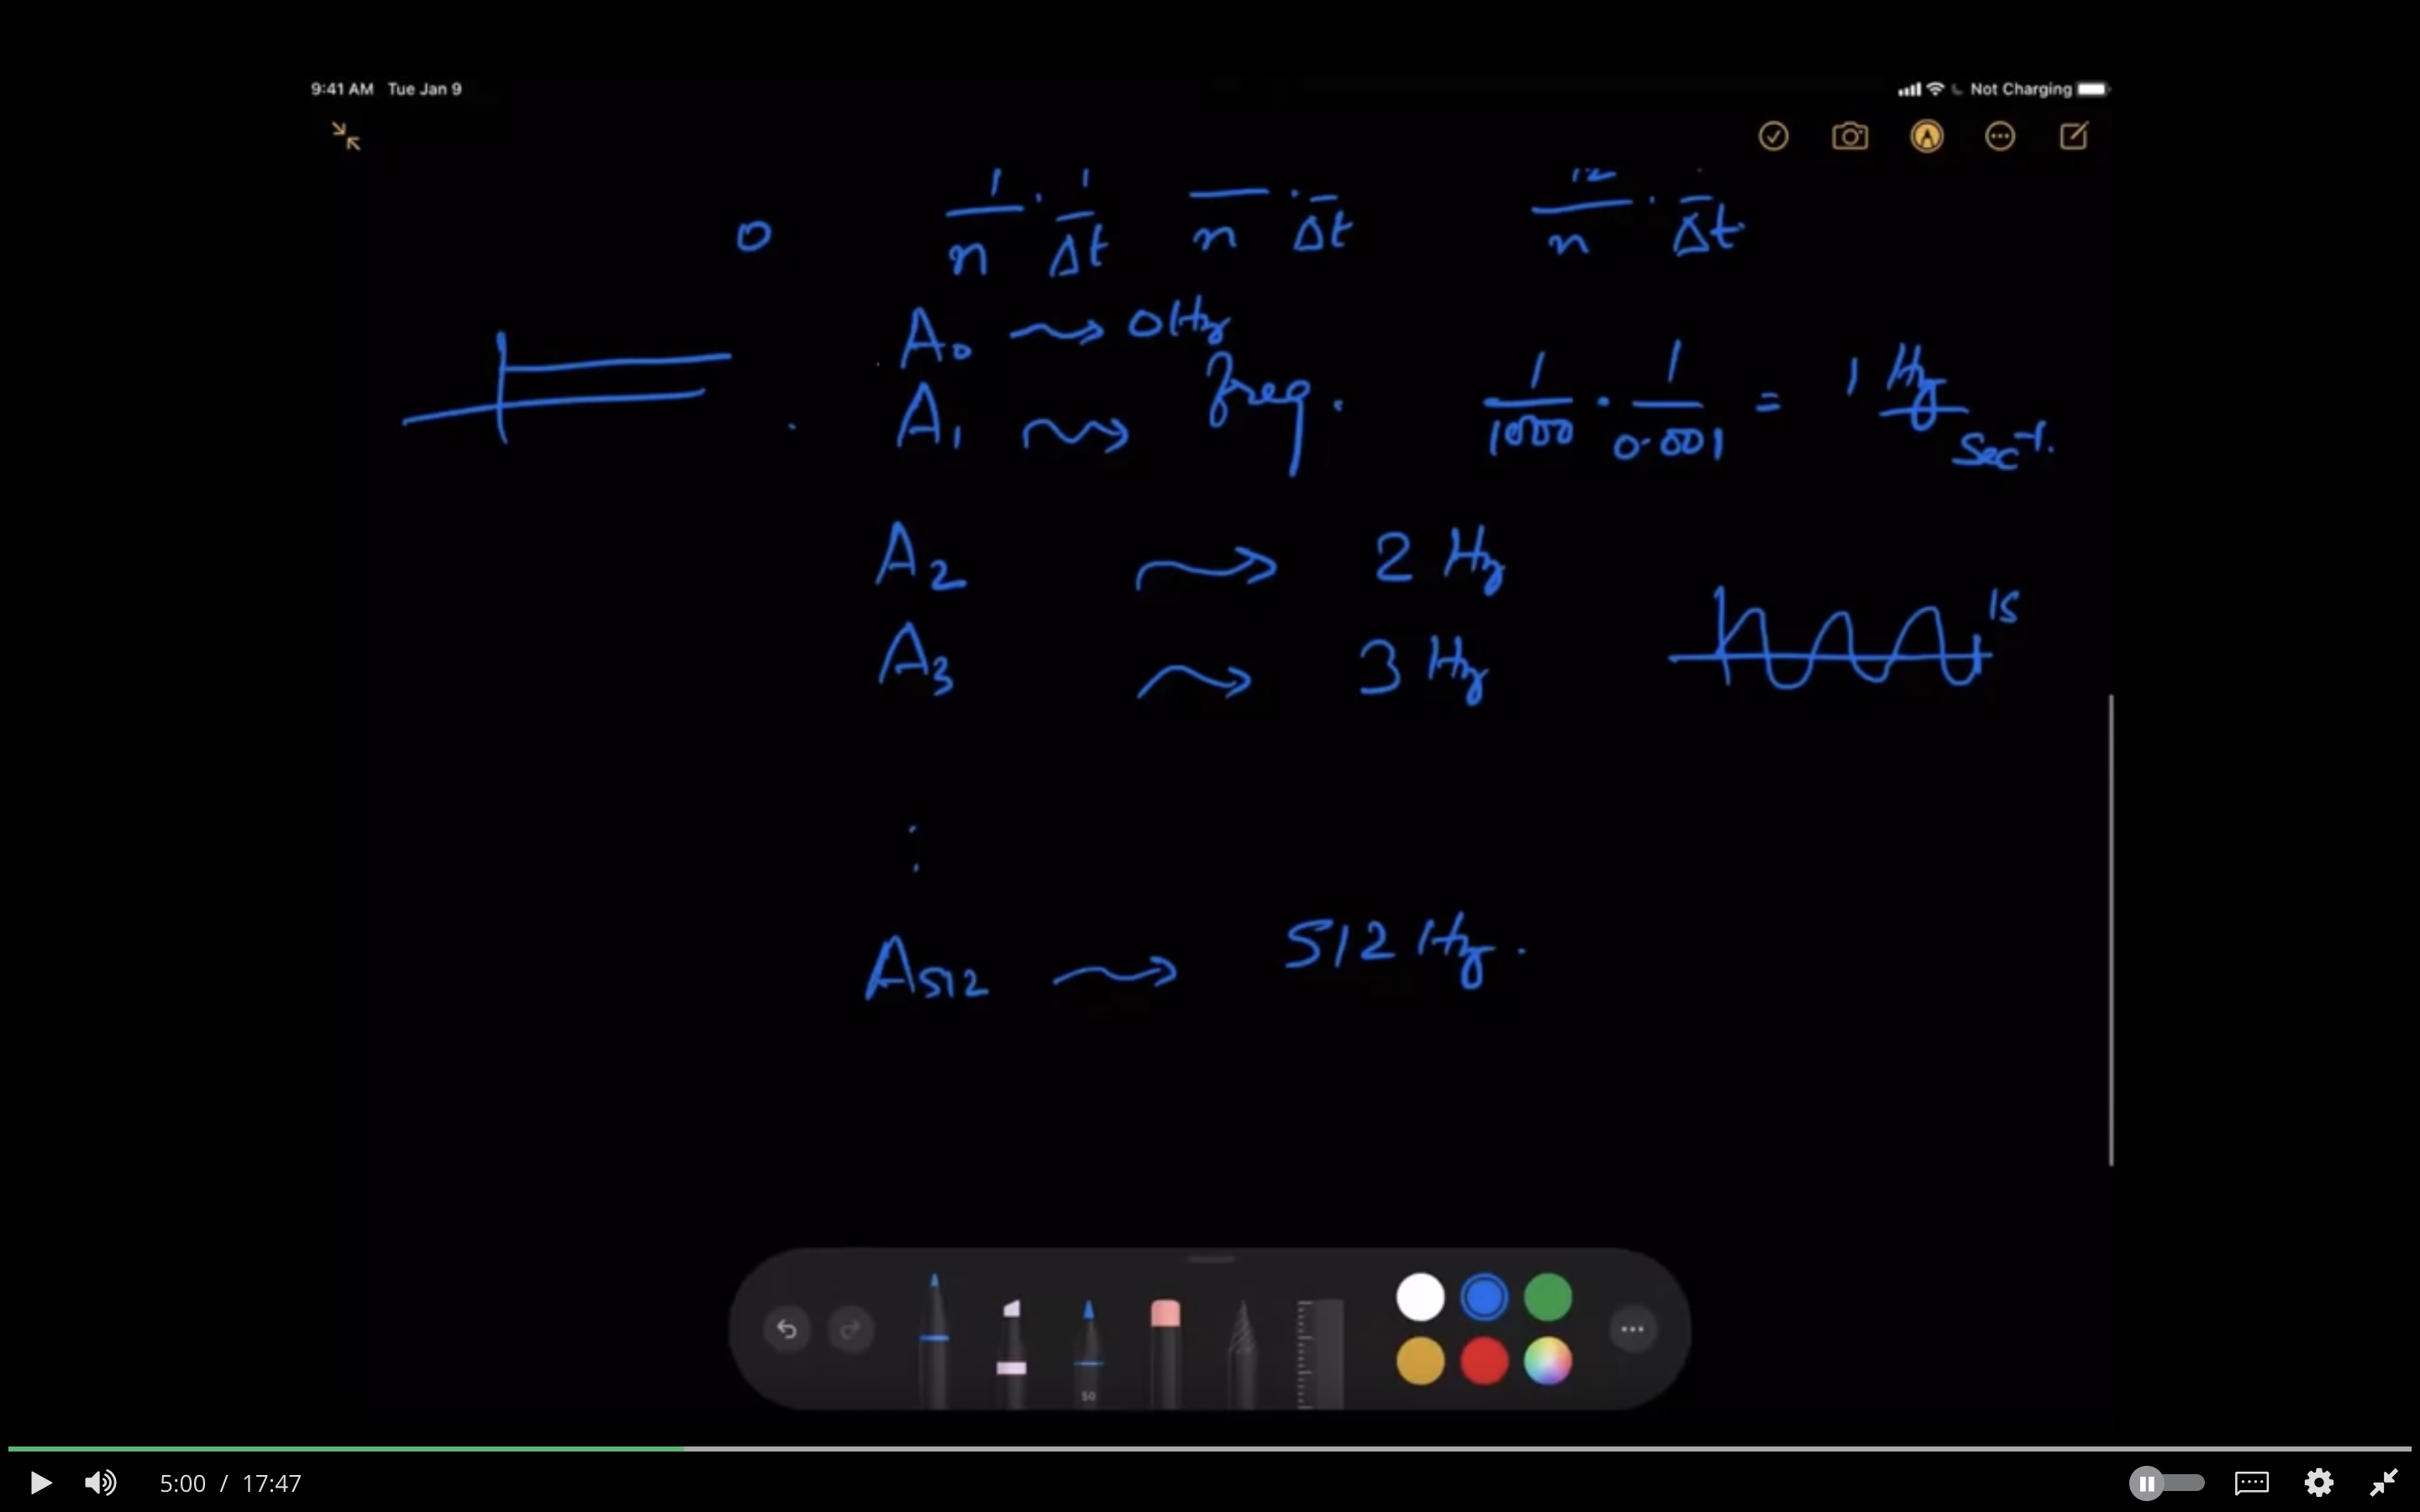 9:41 AM Tue Jan 9 Not Charging
0 1/n · 1/Δt /n · /Δt 12/n · /Δt
A₀ 0 Hz
A₁ freq. 1/1000 · 1/0.001 = 1 Hz
sec⁻¹.
A₂ 2 Hz
1s
A₃ 3 Hz
:
A₅₁₂ 512 Hz.
50
5:00 / 17:47